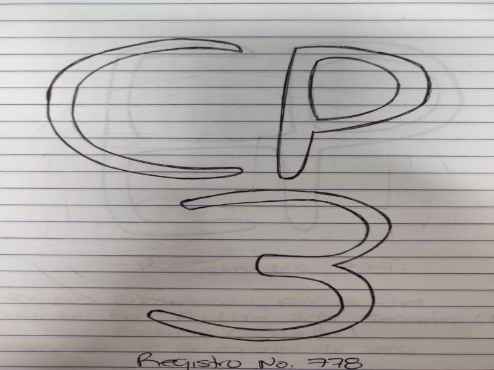 CP
3
Registro No. 778